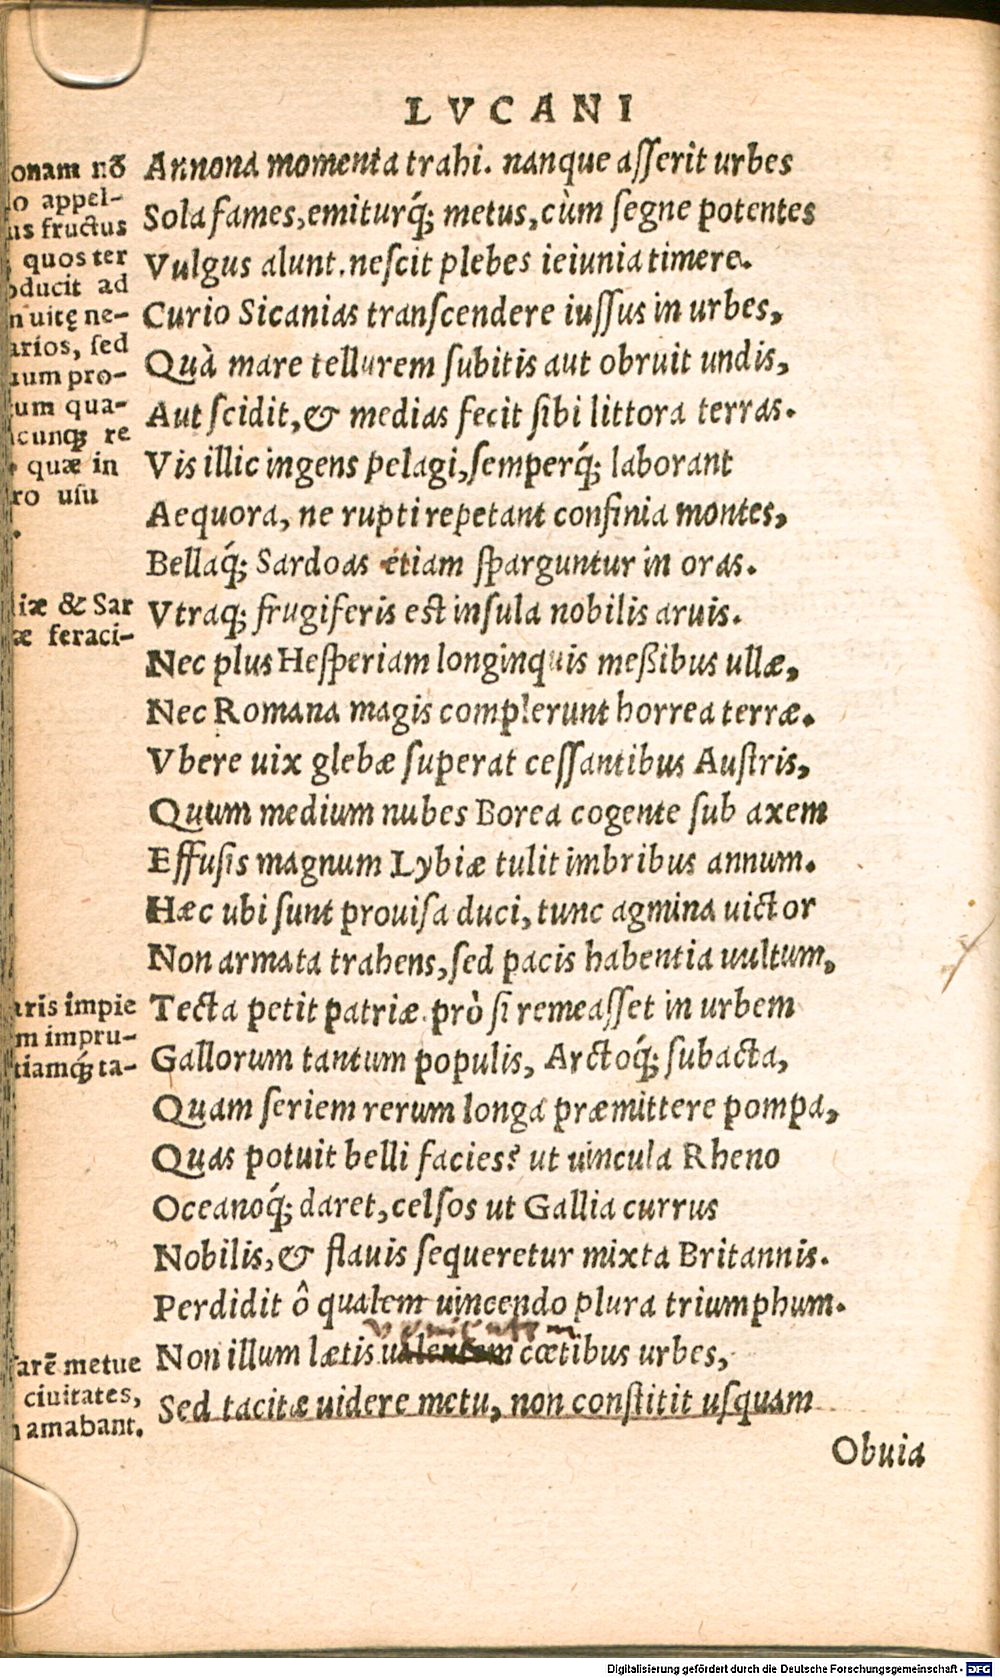 LVCANI
onam nō
appel-
fructus
quos ter
ad
uitę ne-
sed
pro-
qua-
re
quæ in
usu
Annona momenta trahi. nanque asserit urbes
Sola fames, emiturq́; metus, cùm segne potentes
Vulgus alunt. nescit plebes ieiunia timere.
Curio Sicanias transcendere iussus in urbes,
Quà mare tellurem subitis aut obruit undis,
Aut scidit, & medias fecit sibi littora terras.
Vis illic ingens pelagi, semperq́; laborant
Aequora, ne rupti repetant confinia montes,
Bellaq́; Sardoas etiam sparguntur in oras.
& Sar
feraci-
Vtraq; frugiferis est insula nobilis aruis.
Nec plus Hesperiam longinquis meßibus ullæ,
Nec Romana magis complerunt horrea terræ.
Vbere uix glebæ superat cessantibus Austris,
Quum medium nubes Borea cogente sub axem
Effusis magnum Lybiæ tulit imbribus annum.
Hæc ubi sunt prouisa duci, tunc agmina uictor
Non armata trahens, sed pacis habentia uultum,
impie
impru-
ta-
Tecta petit patriæ. prò si remeasset in urbem
Gallorum tantum populis, Arctoq́; subacta,
Quam seriem rerum longa præmittere pompa,
Quas potuit belli facies? ut uincula Rheno
Oceanoq́; daret, celsos ut Gallia currus
Nobilis, & flauis sequeretur mixta Britannis.
Perdidit ô qualem uincendo plura triumphum.
metue
ciuitates,
amabant.
venientem
Non illum lætis ualentem cœtibus urbes,
Sed tacitæ uidere metu, non constitit usquam
Obuia
Digitalisierung gefördert durch die Deutsche Forschungsgemeinschaft - DFG